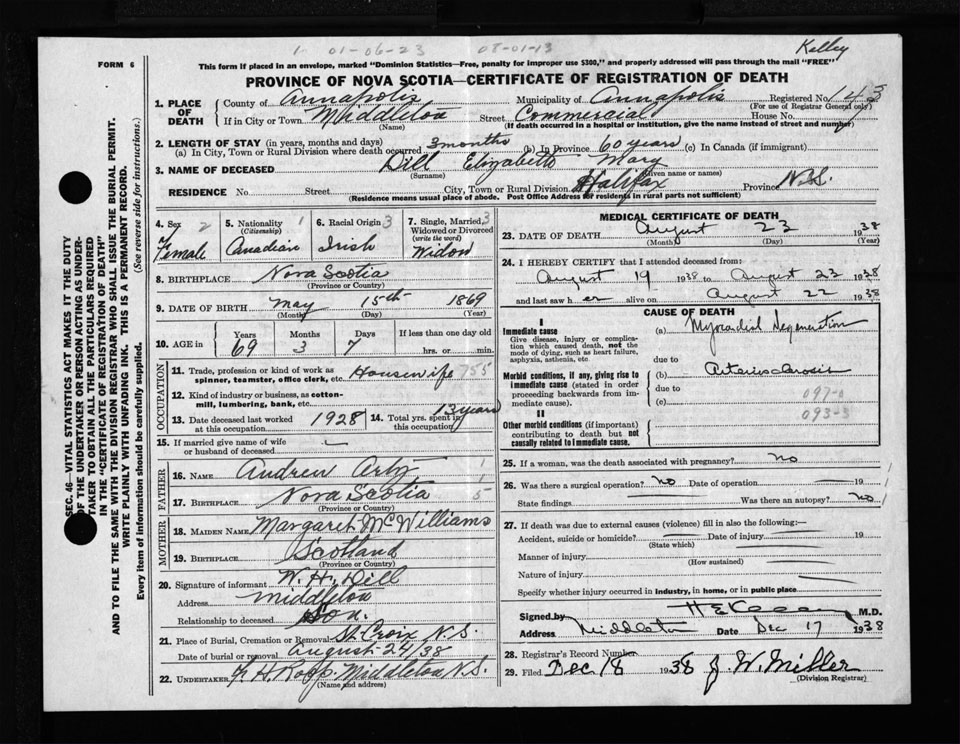 1 01-06-23 08-01-13 Kelley
FORM 6
This form if placed in an envelope, marked "Dominion Statistics—Free, penalty for improper use $300," and properly addressed will pass through the mail "FREE"
PROVINCE OF NOVA SCOTIA—CERTIFICATE OF REGISTRATION OF DEATH
1. PLACE OF DEATH County of Annapolis Municipality of Annapolis Registered No. 143
(For use of Registrar General only)
If in City or Town Middleton Street Commercial House No.
(Name) (If death occurred in a hospital or institution, give the name instead of street and number)
2. LENGTH OF STAY (in years, months and days)
(a) In City, Town or Rural Division where death occurred 3 months (b) In Province 60 years (c) In Canada (if immigrant)
3. NAME OF DECEASED Dill Elizabeth Mary
(Surname) (Given name or names)
RESIDENCE No. Street City, Town or Rural Division Halifax Province N.S.
(Residence means usual place of abode. Post Office Address for residents in rural parts not sufficient)
4. Sex 2 Female
5. Nationality 1 (Citizenship) Canadian
6. Racial Origin 3 Irish
7. Single, Married, 3 Widowed or Divorced (write the word) Widow
8. BIRTHPLACE Nova Scotia
(Province or Country)
9. DATE OF BIRTH May 15th 1869
(Month) (Day) (Year)
10. AGE in Years Months Days If less than one day old
69 3 7 hrs. or min.
OCCUPATION
11. Trade, profession or kind of work as spinner, teamster, office clerk, etc. Housewife 755
12. Kind of industry or business, as cotton-mill, lumbering, bank, etc.
13. Date deceased last worked at this occupation 1928
14. Total yrs. spent in this occupation 13 years
15. If married give name of wife or husband of deceased
FATHER
16. NAME Andrew 1
17. BIRTHPLACE Nova Scotia 5
(Province or Country)
MOTHER
18. MAIDEN NAME Margaret McWilliams
19. BIRTHPLACE Scotland
(Province or Country)
20. Signature of informant W. H. Dill
Address Middleton
Relationship to deceased Son.
21. Place of Burial, Cremation or Removal St. Croix N.S.
Date of burial or removal August 24/38
22. UNDERTAKER Middleton N.S.
(Name and address)
MEDICAL CERTIFICATE OF DEATH
23. DATE OF DEATH August 23 1938
(Month) (Day) (Year)
24. I HEREBY CERTIFY that I attended deceased from:
August 19 1938 to August 23 1938
and last saw h er alive on August 22 1938
CAUSE OF DEATH
I
Immediate cause (a) Myocardial Degeneration
Give disease, injury or complication which caused death, not the mode of dying, such as heart failure, asphyxia, asthenia, etc.
due to
Morbid conditions, if any, giving rise to immediate cause (stated in order proceeding backwards from immediate cause).
(b) Arteriosclerosis
due to
(c) 097-0
093-3
II
Other morbid conditions (if important) contributing to death but not causally related to immediate cause.
25. If a woman, was the death associated with pregnancy? no
26. Was there a surgical operation? no Date of operation 19 1
State findings Was there an autopsy? no 1
27. If death was due to external causes (violence) fill in also the following:—
Accident, suicide or homicide? Date of injury 19
(State which)
Manner of injury
(How sustained)
Nature of injury
Specify whether injury occurred in industry, in home, or in public place
Signed by M.D.
Address Middleton Date Dec 17 1938
28. Registrar's Record Number
29. Filed Dec 18 1938 J. W. Miller
(Division Registrar)
SEC. 46—VITAL STATISTICS ACT MAKES IT THE DUTY OF THE UNDERTAKER OR PERSON ACTING AS UNDERTAKER TO OBTAIN ALL THE PARTICULARS REQUIRED IN THE "CERTIFICATE OF REGISTRATION OF DEATH"
AND TO FILE THE SAME WITH THE DIVISION REGISTRAR WHO SHALL ISSUE THE BURIAL PERMIT.
WRITE PLAINLY WITH UNFADING INK. THIS IS A PERMANENT RECORD.
Every item of information should be carefully supplied. (See reverse side for instructions.)